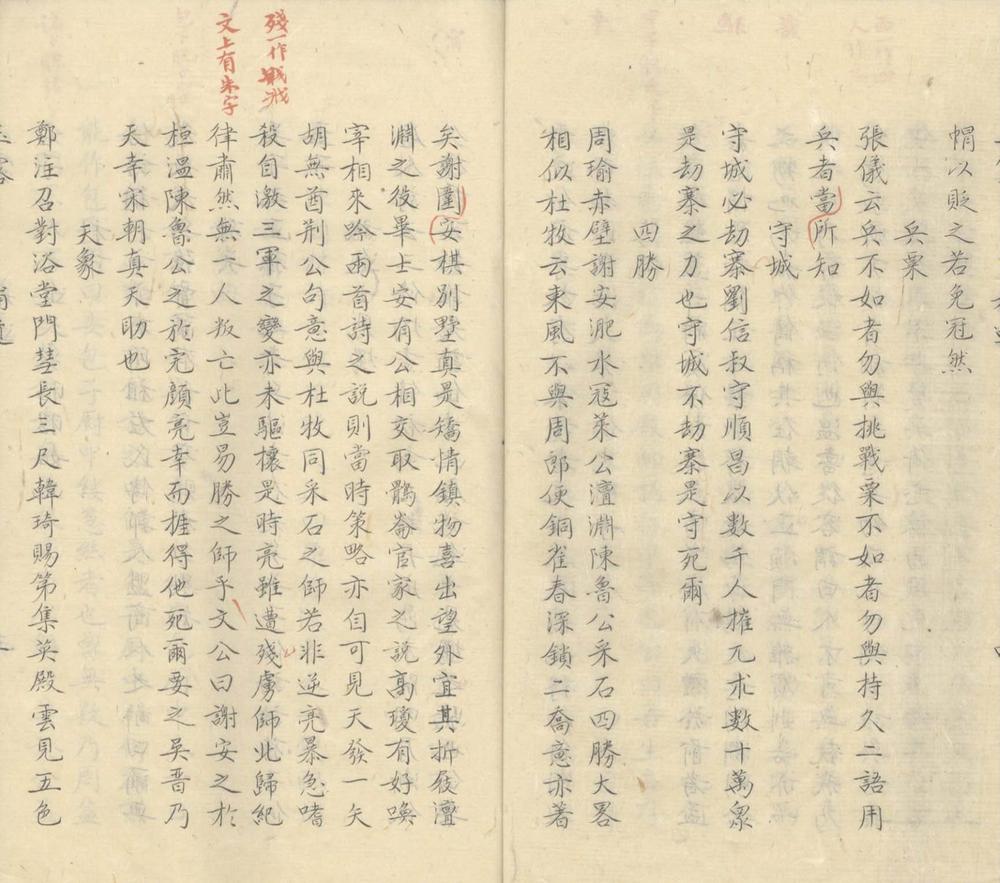 帽以貶之若免冠然
兵粟
張儀云兵不如者勿與挑戰粟不如者勿與持久二語用
兵者當所知
守城
守城必劫寨劉信叔守順昌以數千人摧兀朮數十萬衆
是劫寨之力也守城不劫寨是守死爾
四勝
周瑜赤壁謝安淝水寇萊公澶淵陳魯公采石四勝大畧
相似杜牧云東風不與周郎便銅雀春深鎖二喬意亦著
矣謝圍安棋別墅真是矯情鎮物喜出望外宜其折屐澶
淵之役畢士安有公相交取鶻崙官家之說高瓊有好喚
宰相來吟兩首詩之說則當時策略亦自可見天發一矢
胡無酋荆公句意與杜牧同采石之師若非逆亮暴急嗜
殺自激三軍之變亦未驅攘是時亮雖遭殘虜師北歸紀
律肅然無一人叛亡此豈易勝之師乎文公曰謝安之於
桓溫陳魯公之於完顏亮幸而捱得他死爾要之吳晋乃
天幸宋朝真天助也
天象
鄭注召對浴堂門彗長三尺韓琦賜第集英殿雲見五色
殘一作戝
文上有朱字